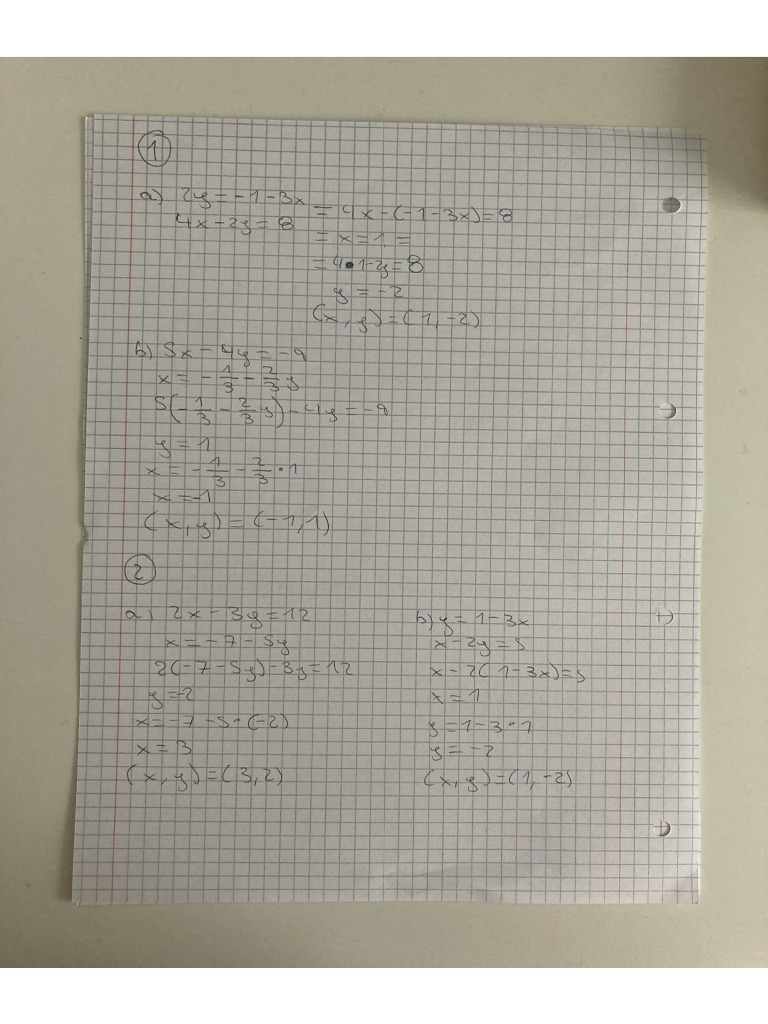 1
a) 2y = -1 - 3x = 4x - (-1 - 3x) = 8
4x - 2y = 8 = x = 1 =
= 4 • 1 - 2y = 8
y = -2
(x, y) = (1, -2)
b) 5x - 4y = -9
x = -1/3 - 2/3 y
5(-1/3 - 2/3 y) - 4y = -9
y = 1
x = -1/3 - 2/3 • 1
x = -1
(x, y) = (-1, 1)
2
a) 2x - 3y = 12
x = -7 - 5y
2(-7 - 5y) - 3y = 12
y = -2
x = -7 - 5 • (-2)
x = 3
(x, y) = (3, 2)
b) y = 1 - 3x
x - 2y = 5
x - 2(1 - 3x) = 5
x = 1
y = 1 - 3 • 1
y = -2
(x, y) = (1, -2)